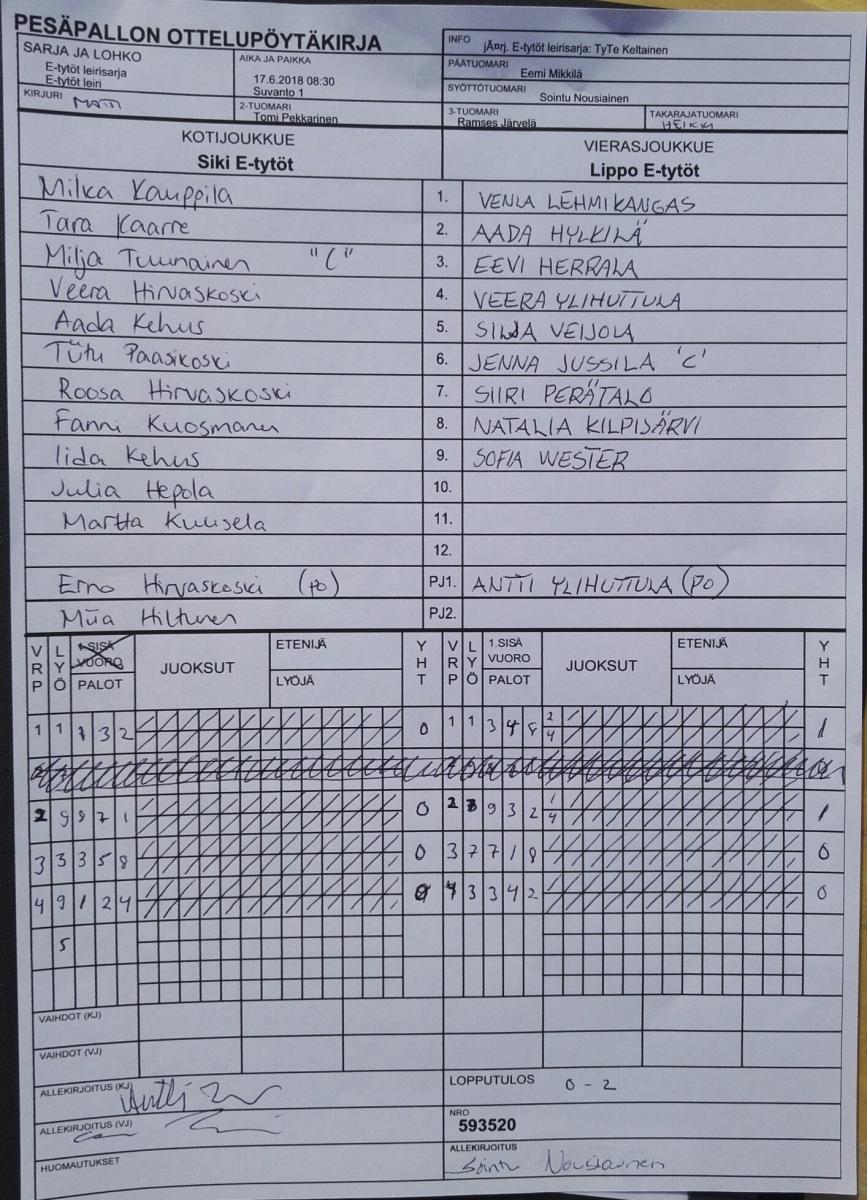 PESÄPALLON OTTELUPÖYTÄKIRJA
SARJA JA LOHKO
E-tytöt leirisarja
E-tytöt leiri
AIKA JA PAIKKA
17.6.2018 08:30
Suvanto 1
INFO jÃ¤rj. E-tytöt leirisarja: TyTe Keltainen
PÄÄTUOMARI
Eemi Mikkilä
SYÖTTÖTUOMARI
Sointu Nousiainen
KIRJURI
2-TUOMARI
Tomi Pekkarinen
3-TUOMARI
Ramses Järvelä
TAKARAJATUOMARI
HEIKKI
KOTIJOUKKUE
Siki E-tytöt
VIERASJOUKKUE
Lippo E-tytöt
Milka Kauppila 1. VENLA LEHMIKANGAS
Tara Kaarre 2. AADA HYLKILÄ
Milja Tuunainen "C" 3. EEVI HERRALA
Veera Hirvaskoski 4. VEERA YLIHUTTULA
Aada Kehus 5. SILJA VEIJOLA
Tütu Paasikoski 6. JENNA JUSSILA 'C'
Roosa Hirvaskoski 7. SIIRI PERÄTALO
Fanni Kuosmanen 8. NATALIA KILPIJÄRVI
Iida Kehus 9. SOFIA WESTER
Julia Hepola 10.
Martta Kuusela 11.
12.
Erno Hirvaskoski (po) PJ1. ANTTI YLIHUTTULA (PO)
Miia Hiltunen PJ2.
VRP LYÖ 1.SISÄ VUORO PALOT JUOKSUT ETENIJÄ LYÖJÄ YHT VRP LYÖ 1.SISÄ VUORO PALOT JUOKSUT ETENIJÄ LYÖJÄ YHT
1 1 1 3 2 0 1 1 3 4 8 2/4 1
2 9 9 7 1 0 2 8 9 3 2 1/4 1
3 3 3 5 8 0 3 7 7 1 8 0
4 9 1 2 4 0 4 3 3 4 2 0
5
VAIHDOT (KJ)
VAIHDOT (VJ)
ALLEKIRJOITUS (KJ)
LOPPUTULOS 0 - 2
ALLEKIRJOITUS (VJ)
NRO
593520
HUOMAUTUKSET
ALLEKIRJOITUS
Sointu Nousiainen